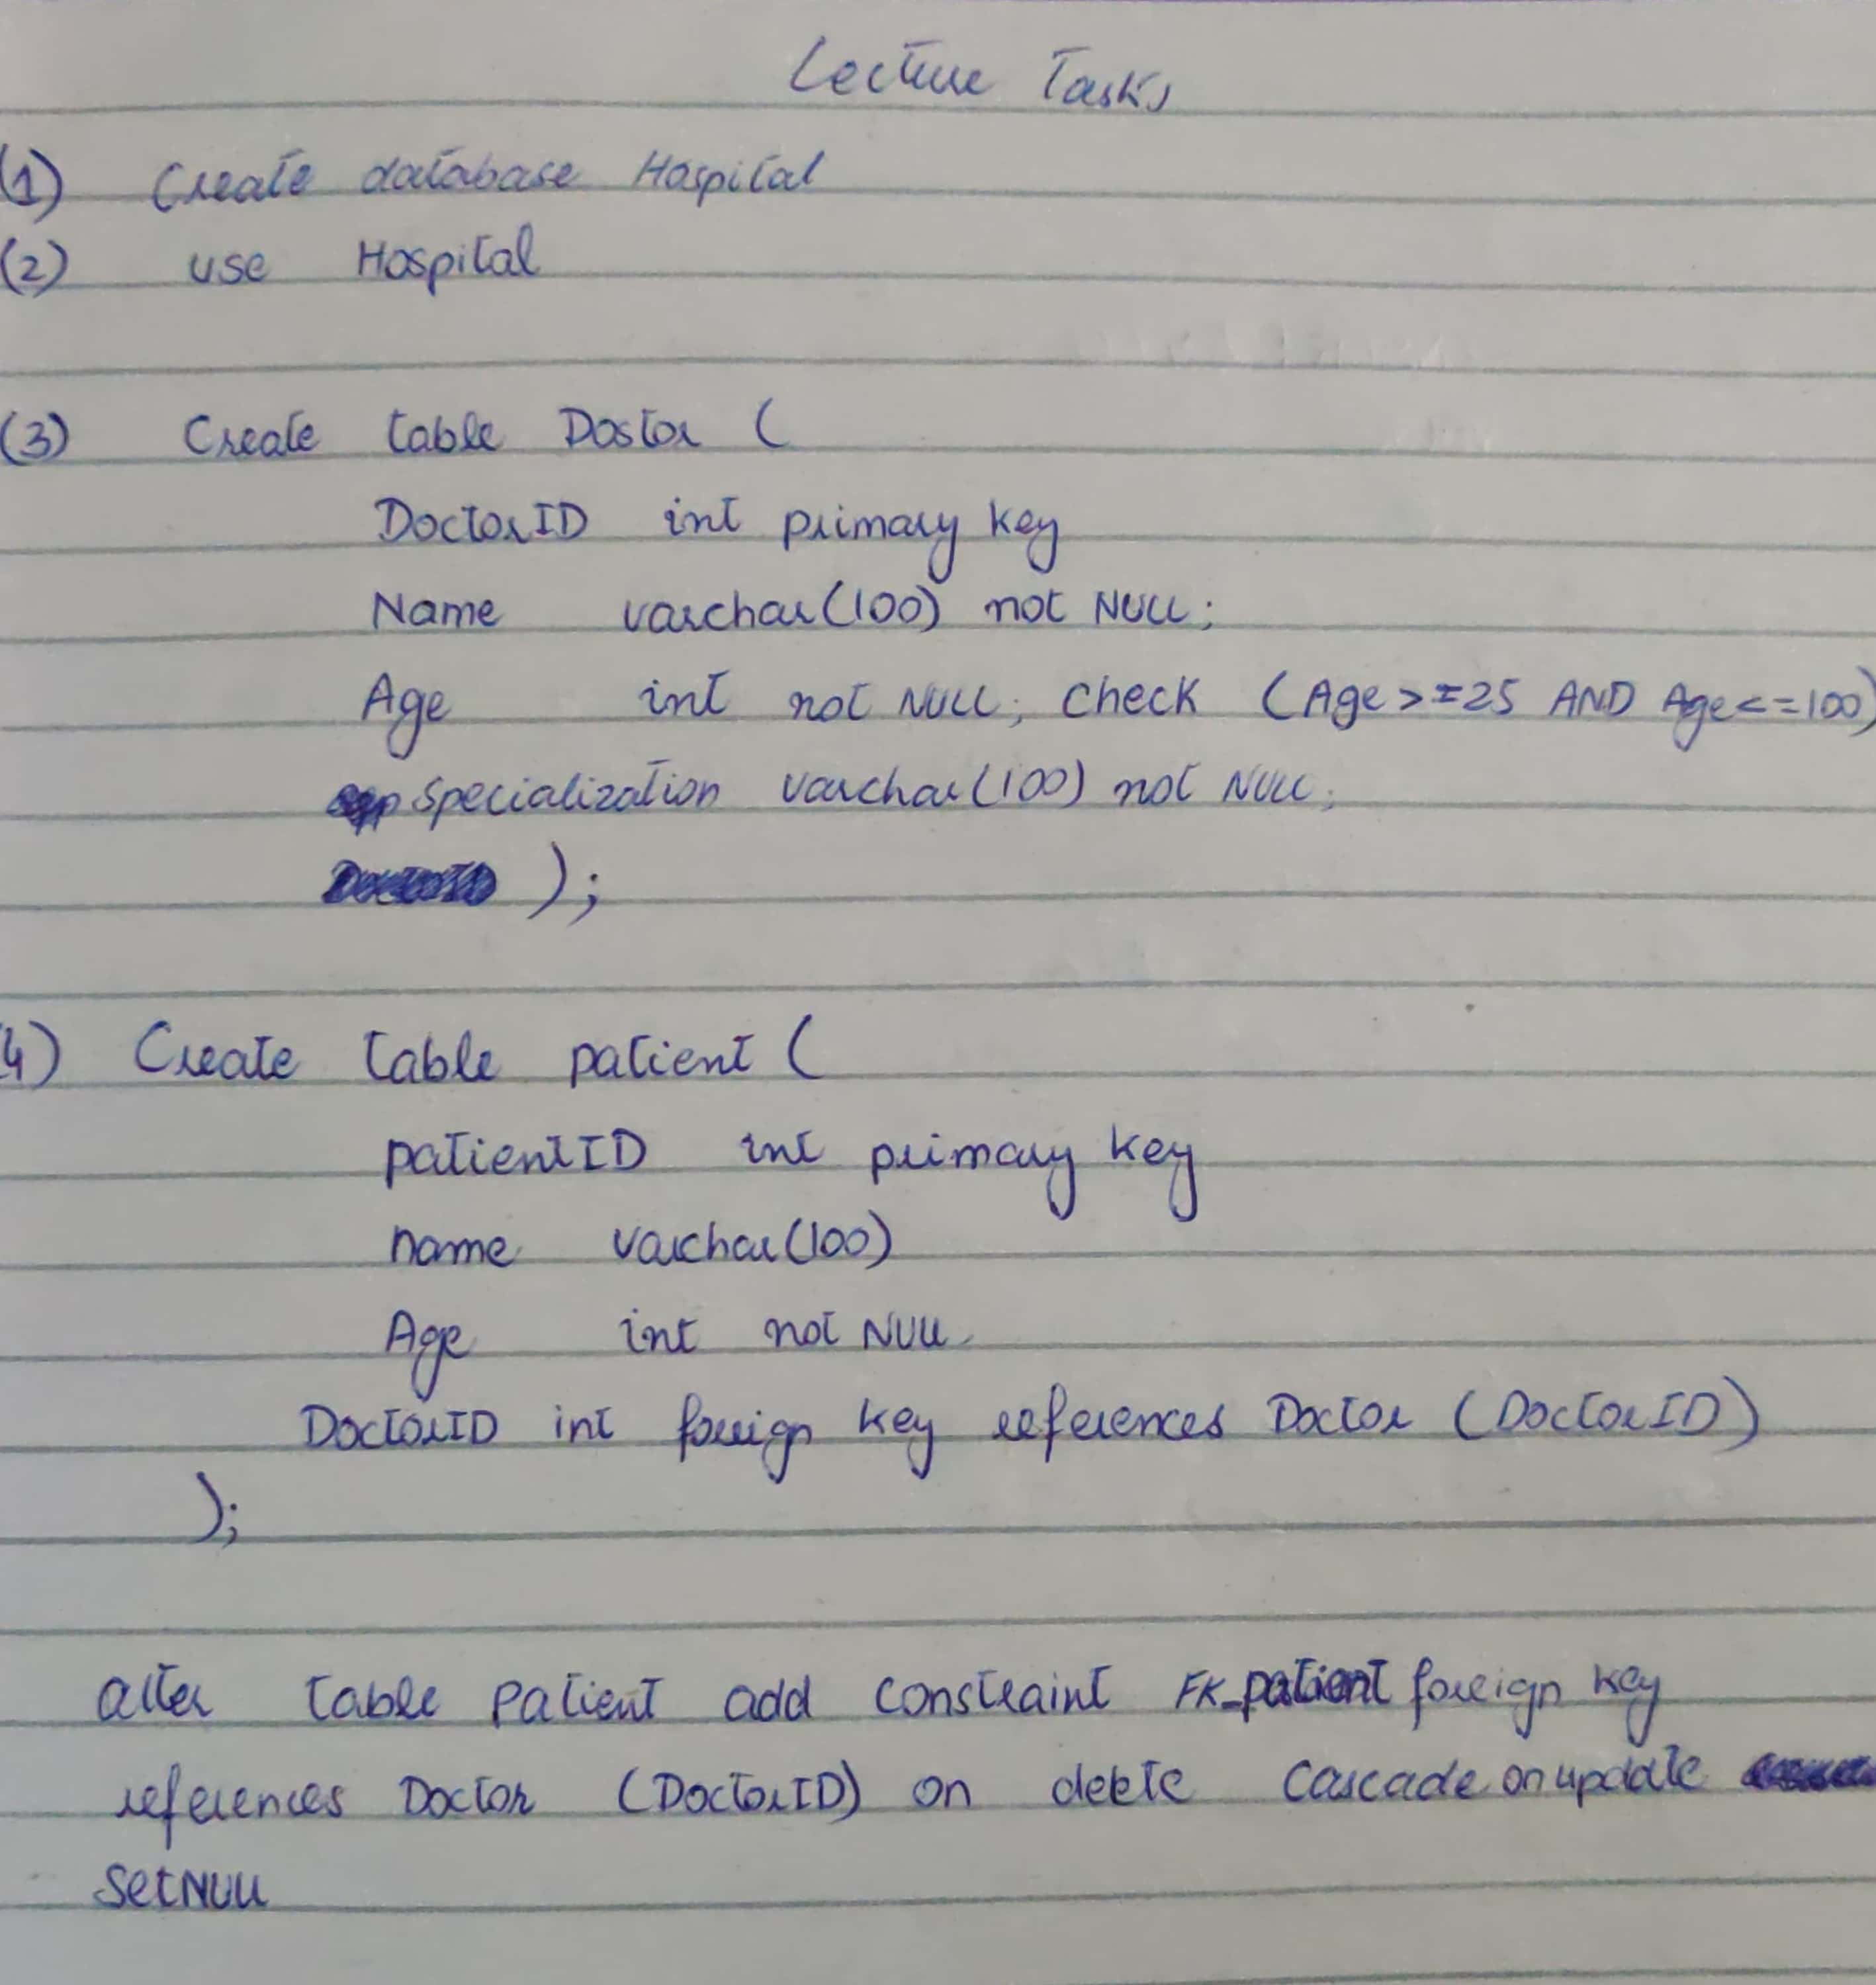 Lecture Tasks
(1) Create database Hospital
(2) use Hospital
(3) Create table Dostor (
DoctorID int primary key
Name varchar(100) not NULL;
Age int not NULL; check (Age>=25 AND Age<=100)
specialization varchar(100) not NULL;
);
4) Create table patient (
patientID int primary key
name varchar(100)
Age int not NULL
DoctorID int foreign key references Doctor (DoctorID)
);
alter table patient add constraint FK_patient foreign key
references Doctor (DoctorID) on delete cascade on update
set NULL